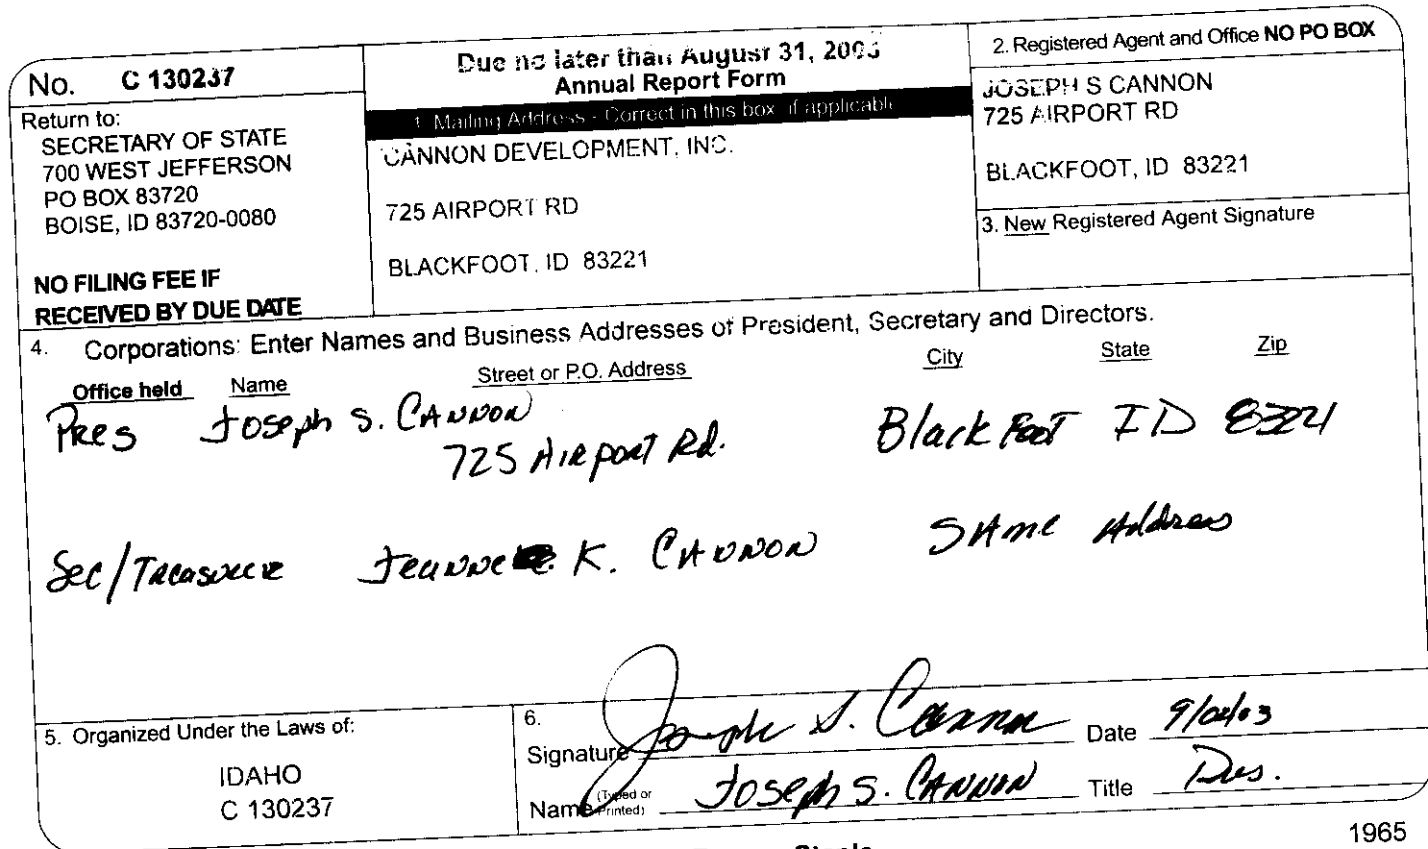 No. C 130237
Return to:
SECRETARY OF STATE
700 WEST JEFFERSON
PO BOX 83720
BOISE, ID 83720-0080
NO FILING FEE IF
RECEIVED BY DUE DATE
Due no later than August 31, 2003
Annual Report Form
1. Mailing Address - Correct in this box if applicable
CANNON DEVELOPMENT, INC.
725 AIRPORT RD
BLACKFOOT, ID 83221
2. Registered Agent and Office NO PO BOX
JOSEPH S CANNON
725 AIRPORT RD
BLACKFOOT, ID 83221
3. New Registered Agent Signature
4. Corporations: Enter Names and Business Addresses of President, Secretary and Directors.
Office held Name Street or P.O. Address City State Zip
Pres Joseph S. CANNON
725 Airport Rd. Blackfoot ID 83221
Sec/Treasurer Jeanne K. CANNON SAme Address
5. Organized Under the Laws of:
IDAHO
C 130237
6.
Signature Joseph S. Cannon Date 9/03
Name (Typed or Printed) Joseph S. CANNON Title Pres.
1965